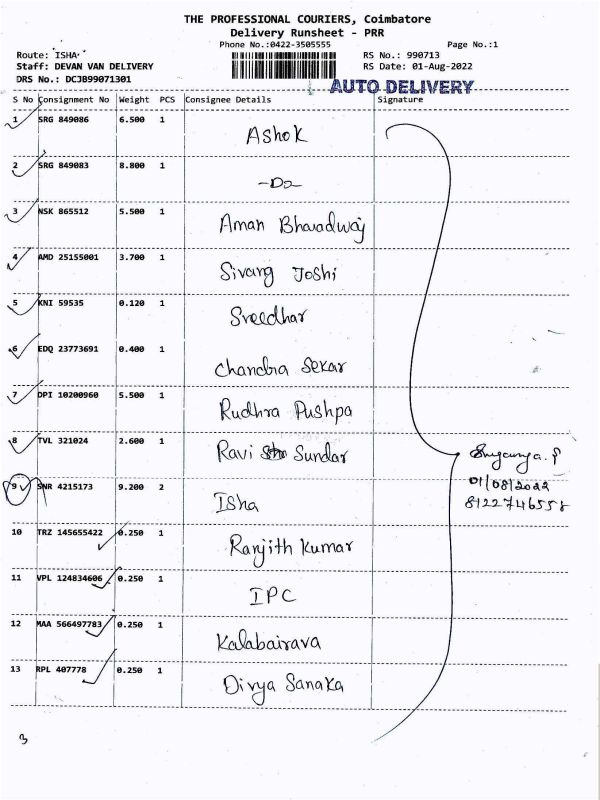 THE PROFESSIONAL COURIERS, Coimbatore
Delivery Runsheet - PRR
Phone No.:0422-3505555 Page No.:1
Route: ISHA RS No.: 990713
Staff: DEVAN VAN DELIVERY RS Date: 01-Aug-2022
DRS No.: DCJB99071301
AUTO DELIVERY
S No Consignment No Weight PCS Consignee Details Signature
1 SRG 849086 6.500 1 Ashok
2 SRG 849083 8.800 1 -Do-
3 NSK 865512 5.500 1 Aman Bharadwaj
4 AMD 25155001 3.700 1 Sivang Joshi
5 KNI 59535 0.120 1 Sreedhar
6 EDQ 23773691 0.400 1 Chandra Sekar
7 DPI 10200960 5.500 1 Rudhra Pushpa
8 TVL 321024 2.600 1 Ravi Sundar
9 SNR 4215173 9.200 2 Isha
01/08/2022
8122746558
10 TRZ 145655422 0.250 1 Ranjith Kumar
11 VPL 124834606 0.250 1 IPC
12 MAA 566497783 0.250 1 Kalabairava
13 RPL 407778 0.250 1 Divya Sanaka